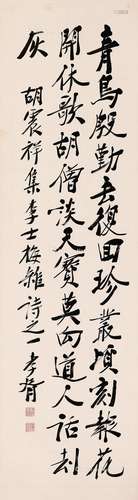 青鳥殷勤去復回珍叢頃刻報花
開休歌胡僧談天寶莫向道人話劫
灰
胡震祥集李士梅雜詩之一 李胥